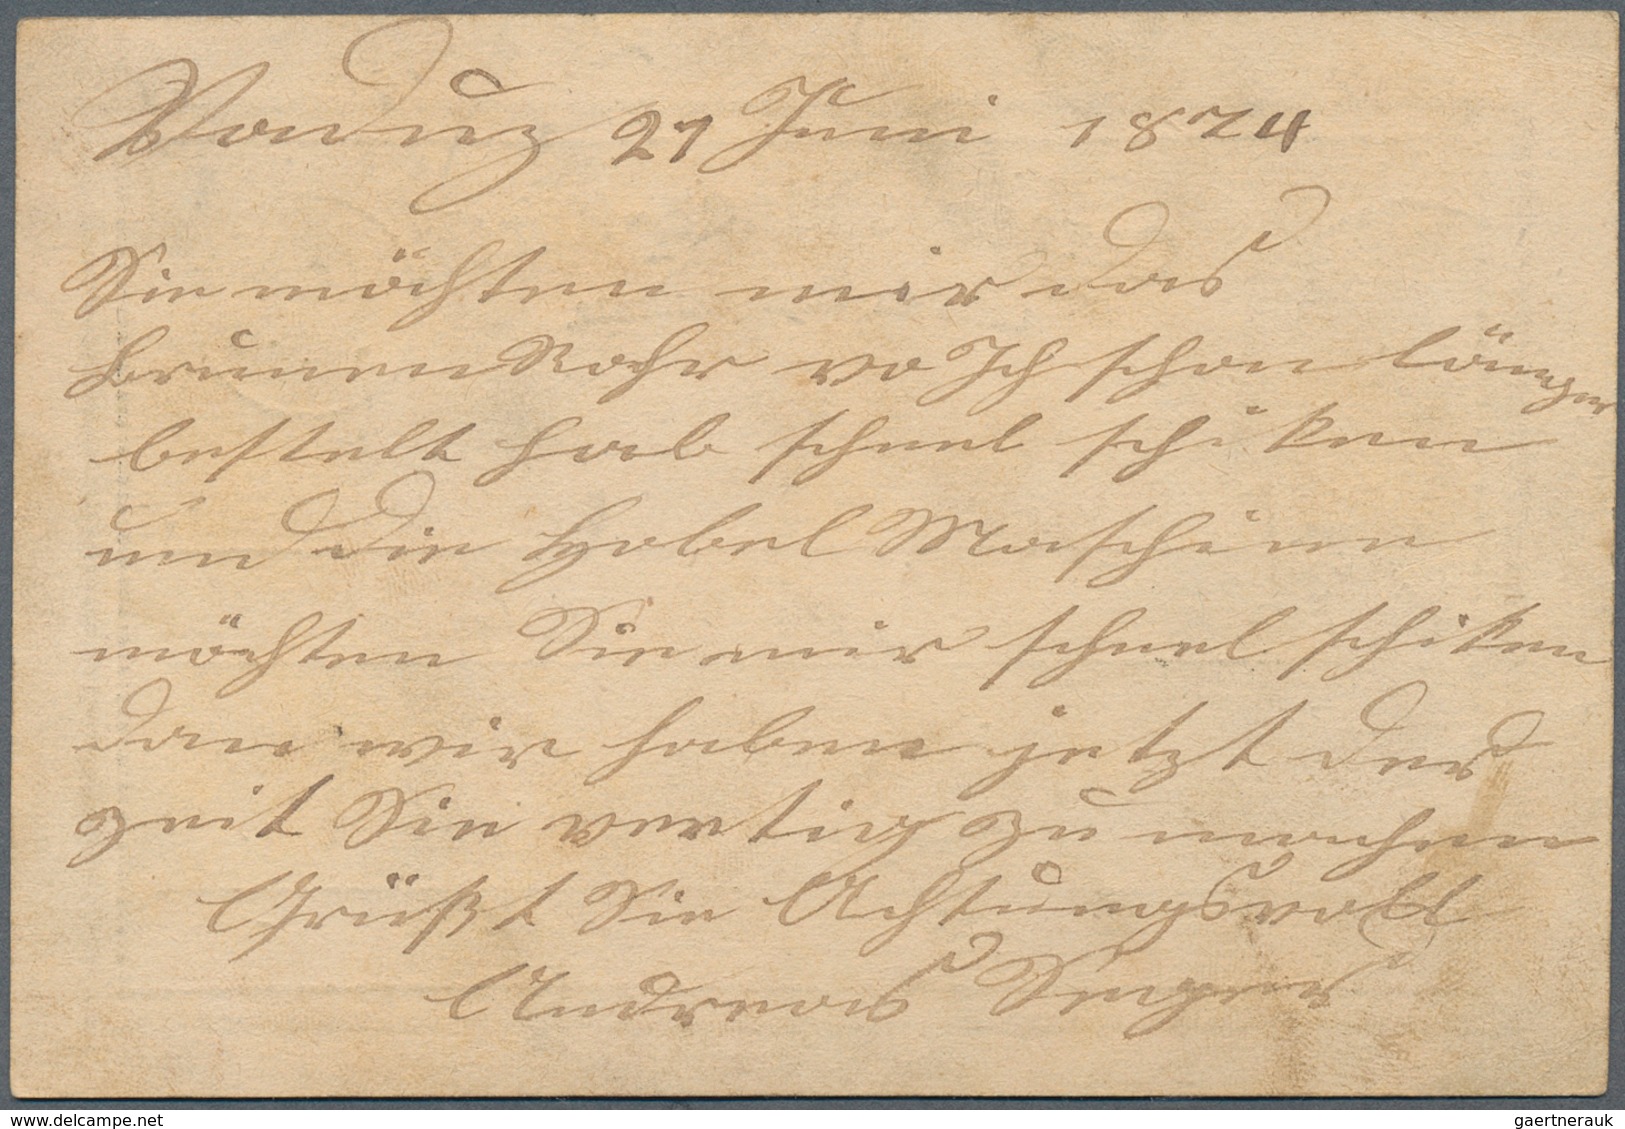 Vaduz 27 Juni 1874
Sie möchten mir das
brunen Rohr wo Ich schon länger
bestelt hab schnel schiken
und die Hobel Maschine
möchten Sie mir schnel schiken
dan wir haben jetzt der
zeit Sie vertig zu machen
Grüßt Sie Achtungsvoll
Andreas
gaertnerauk